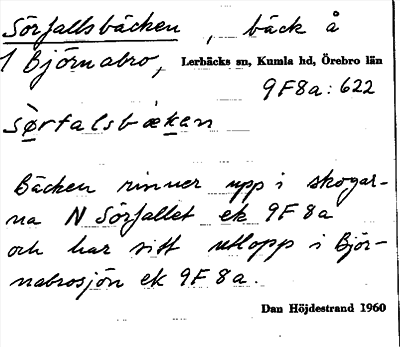 Sörfallsbäcken, bäck å
1 Björnabro, Lerbäcks sn, Kumla hd, Örebro län
9F8a:622
sørfalsbækan
Bäcken rinner upp i skogar-
na N Sörfallet ek 9F8a
och har sitt utlopp i Björ-
nabrosjön ek 9F8a.
Dan Höjdestrand 1960